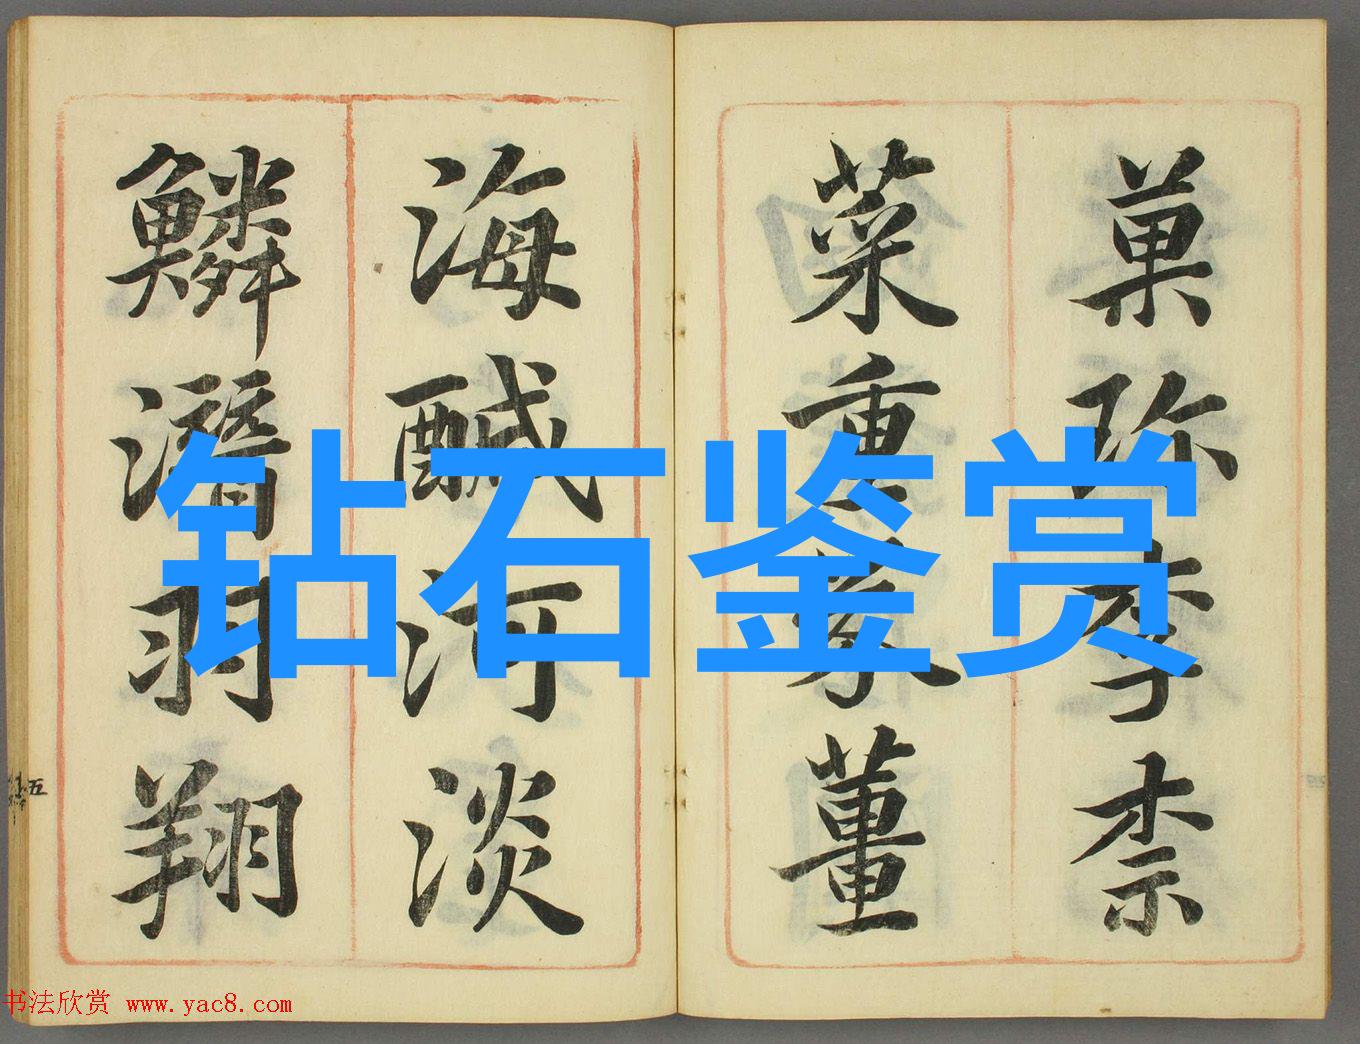 菓珎李柰
菜重芥薑
海醎河淡
鱗潛羽翔
钻石鉴赏
五
书法欣赏 www.yac8.com